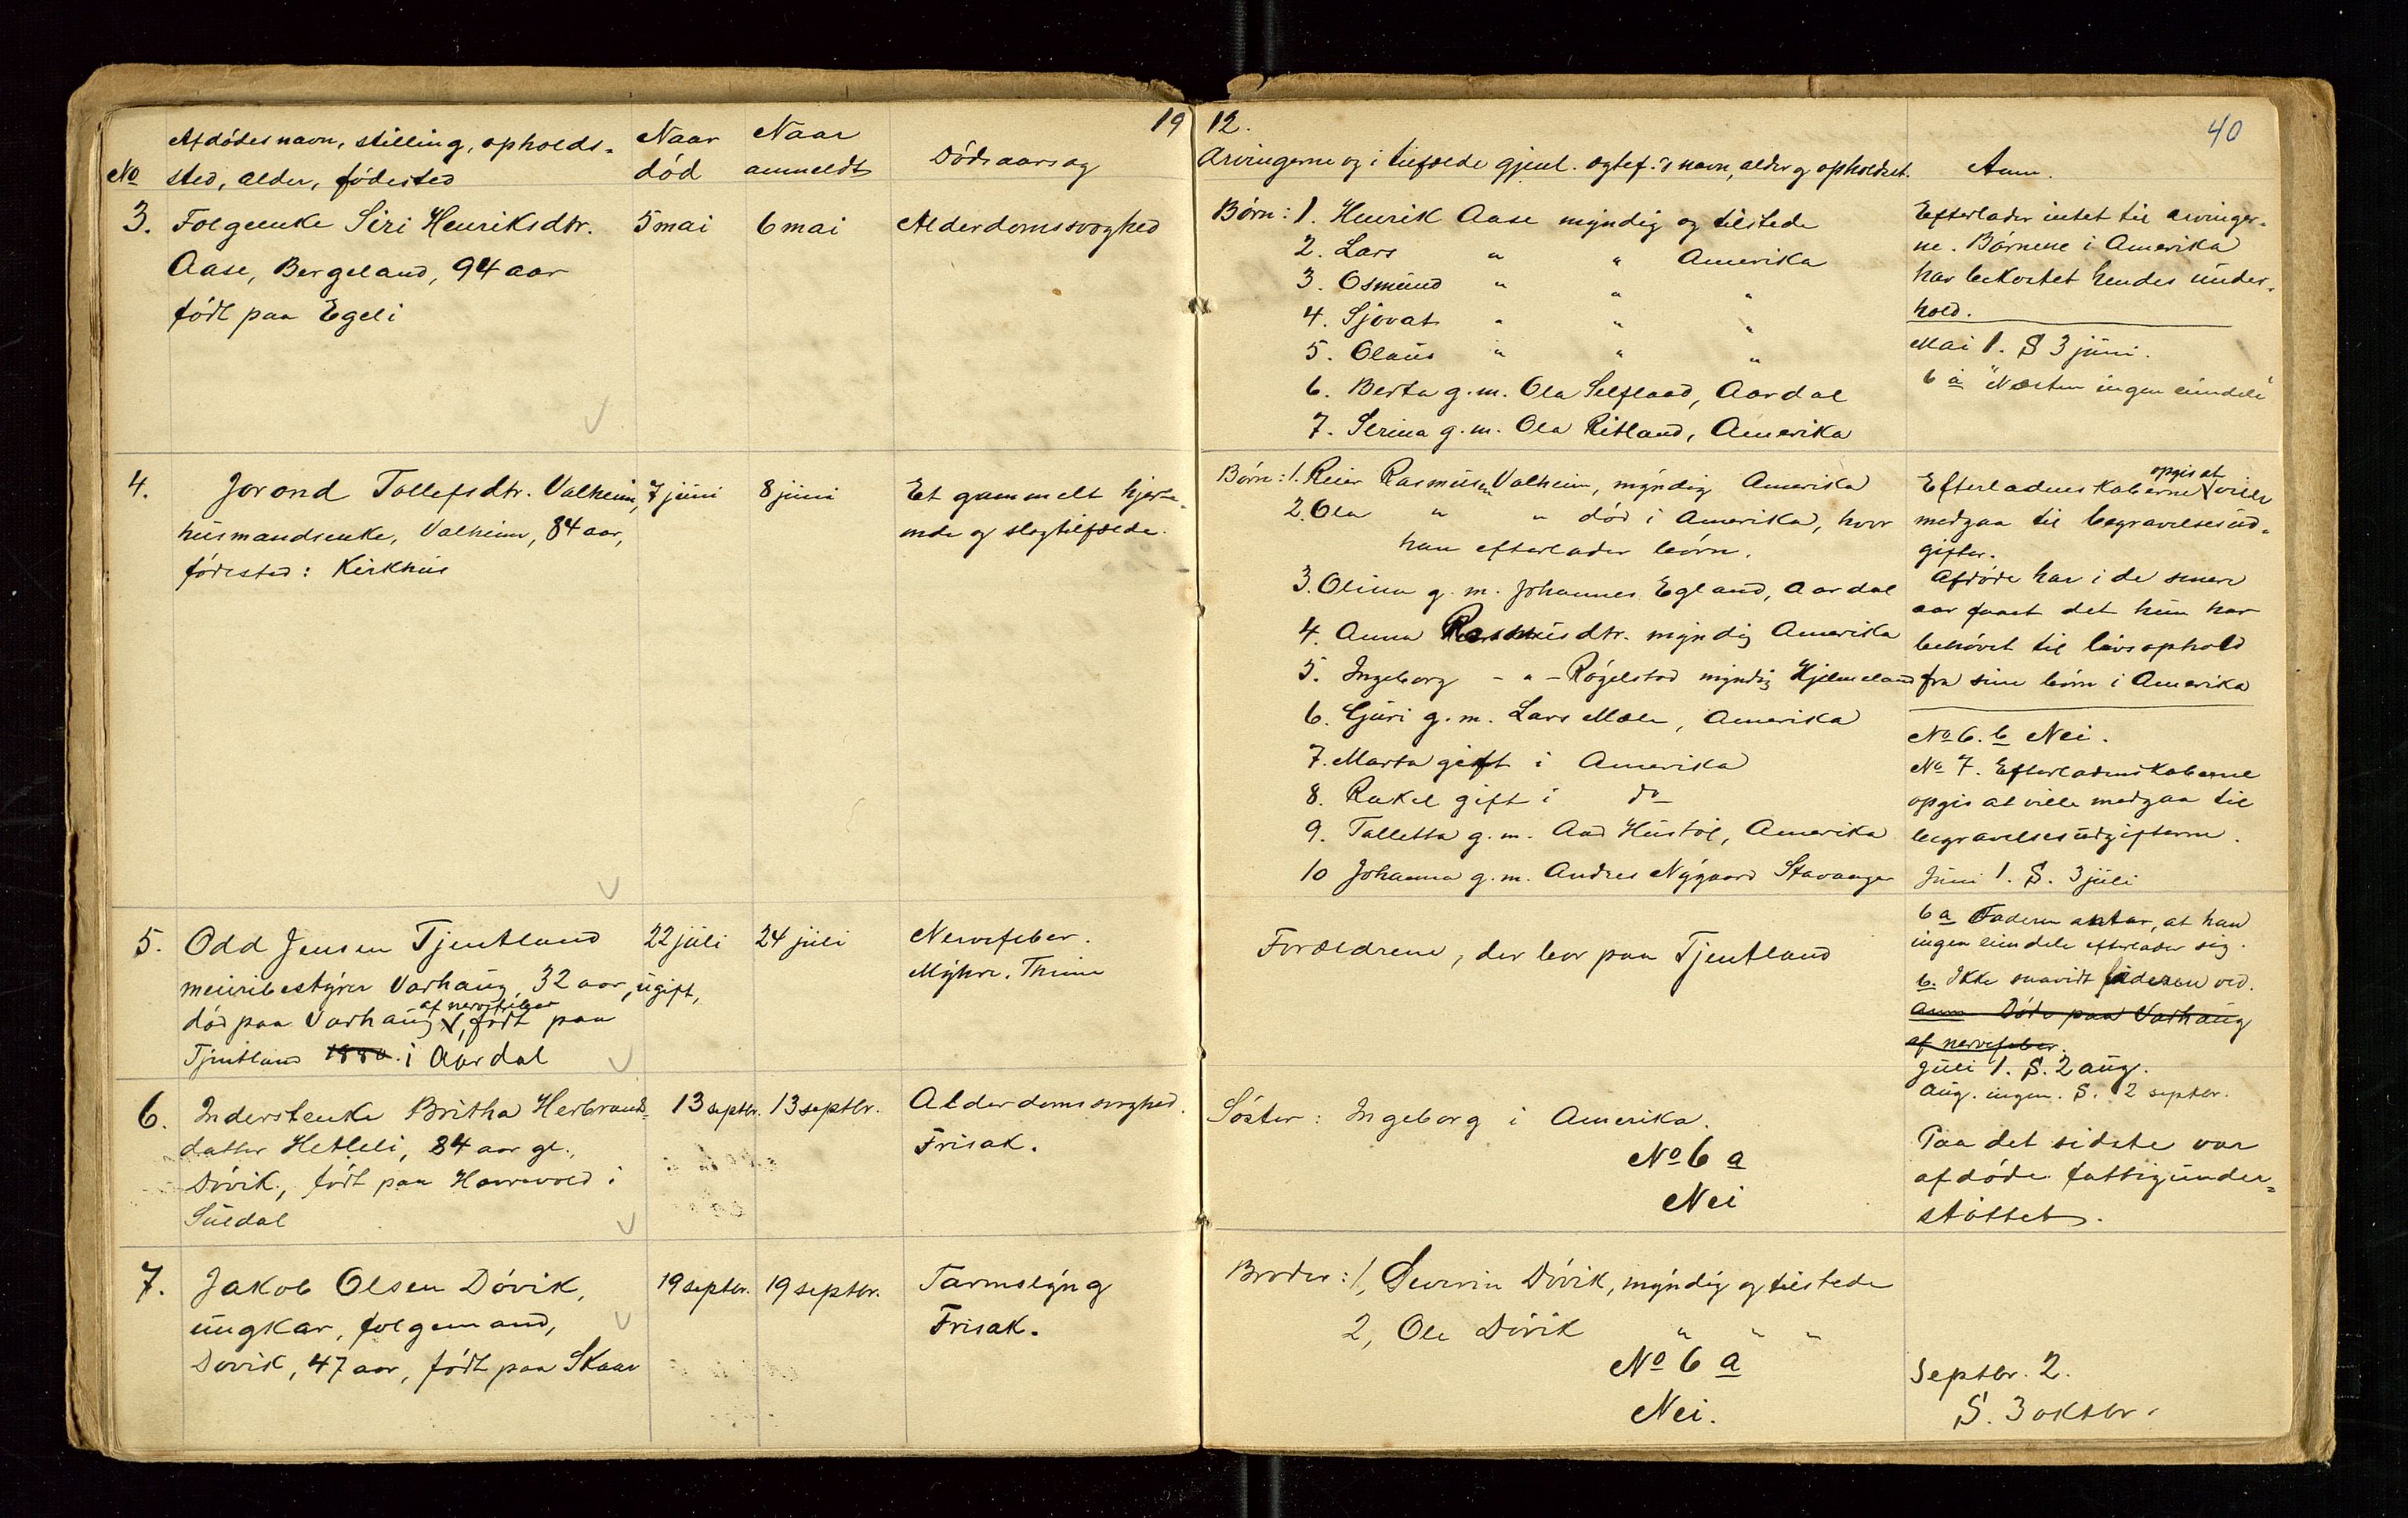 19 12.
40
No
Afdødes navn, stilling, opholds-
sted, alder, fødested
Naar
død
Naar
anmeldt
Dødsaarsag
Arvingerne og i tilfælde gjenl. ægtef.'s navn, alder og opholdsst.
Anm.
3. Folgeenke Siri Henriksdtr.
Aase, Bergeland, 94 aar
født paa Egeli
5 mai
6 mai
Alderdomssvaghed
Børn: 1. Henrik Aase myndig og tilstede
2. Lars " " Amerika
3. Osmund " " "
4. Sjovat " " "
5. Olaus " " "
6. Berta g. m. Ola Selfland, Aardal
7. Serina g. m. Ola Ritland, Amerika
Efterlader intet til arvinger-
ne. Børnene i Amerika
har bekostet hendes under-
hold.
Mai 1. S 3 juni.
6 a "Næsten ingen eiendele"
4. Jorond Tollefsdtr. Valheim,
husmandsenke, Valheim, 84 aar,
fødested: Kirkhus
7 juni
8 juni
Et gammelt hjerte-
onde og slagtilfælde.
Børn: 1. Reier Rasmusen Valheim, myndig Amerika
2. Ola " " død i Amerika, hvor
han efterlader børn.
3. Olina g. m. Johannes Egland, Aardal
4. Anna Rasmusdtr. myndig Amerika
5. Ingeborg - " - Røgelstad myndig Hjelmeland
6. Guri g. m. Lars Mæle, Amerika
7. Marta gift i Amerika
8. Rakel gift i do
9. Talletta g. m. Aad Hustøl, Amerika
10 Johanna g. m. Andres Nygaard Stavanger
opgis at
Efterladenskaberne V ville
medgaa til begravelsesud-
gifter.
Afdøde har i de senere
aar faaet det hun har
behøvet til livsophold
fra sine børn i Amerika
No 6. b Nei.
No 7. Efterladenskaberne
opgis at ville medgaa til
begravelsesudgifterne.
Juni 1. S. 3 juli
5. Odd Jensen Tjentland
meieribestyrer Varhaug, 32 aar, ugift,
af nervefeber
død paa Varhaug V, født paa
Tjentland 1880. i Aardal
22 juli
24 juli
Nervefeber.
Myhre. Thime
Forældrene, der bor paa Tjentland
6 a Faderen antar, at han
ingen eiendele efterlader sig.
b. Ikke saavidt faderen ved.
Anm Døde paa Varhaug
af nervefeber.
Juli 1. S. 2 aug.
Aug. ingen. S. 2 septbr.
6. Inderstenke Britha Herbrands-
datter Hetleli, 84 aar gl.,
Døvik, født paa Havrevold i
Suldal
13 septbr.
13 septbr.
Alderdomssvaghed.
Frisak.
Søster: Ingeborg i Amerika.
No 6 a
Nei
Paa det sidste var
afdøde fattigunder-
støttet.
7. Jakob Olsen Døvik,
ungkar, folgemand,
Døvik, 47 aar, født paa Skaar
19 septbr.
19 septbr.
Tarmslyng
Frisak.
Brødre: 1, Severin Døvik, myndig og tilstede
2, Ole Døvik " " "
No 6 a
Nei.
Septbr. 2.
S. 3 oktbr.